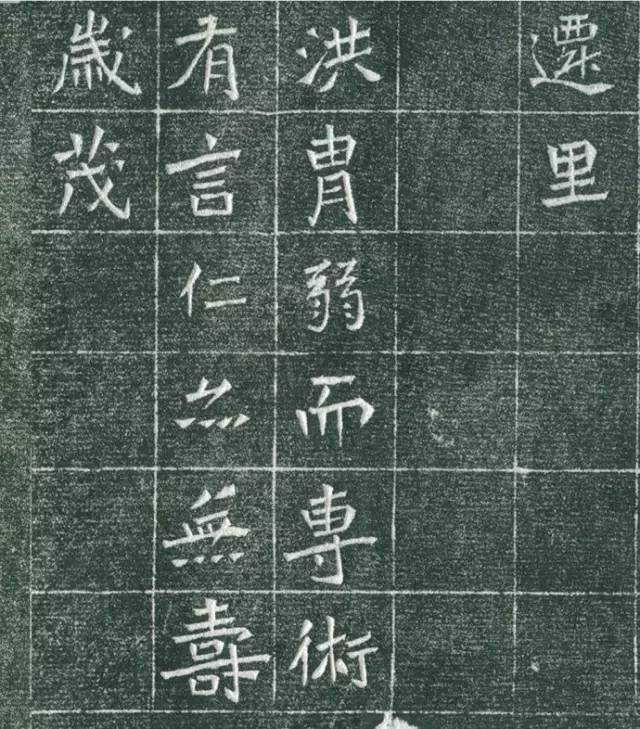 遷里
洪胄弱而專術
有言仁亦無壽
歲茂